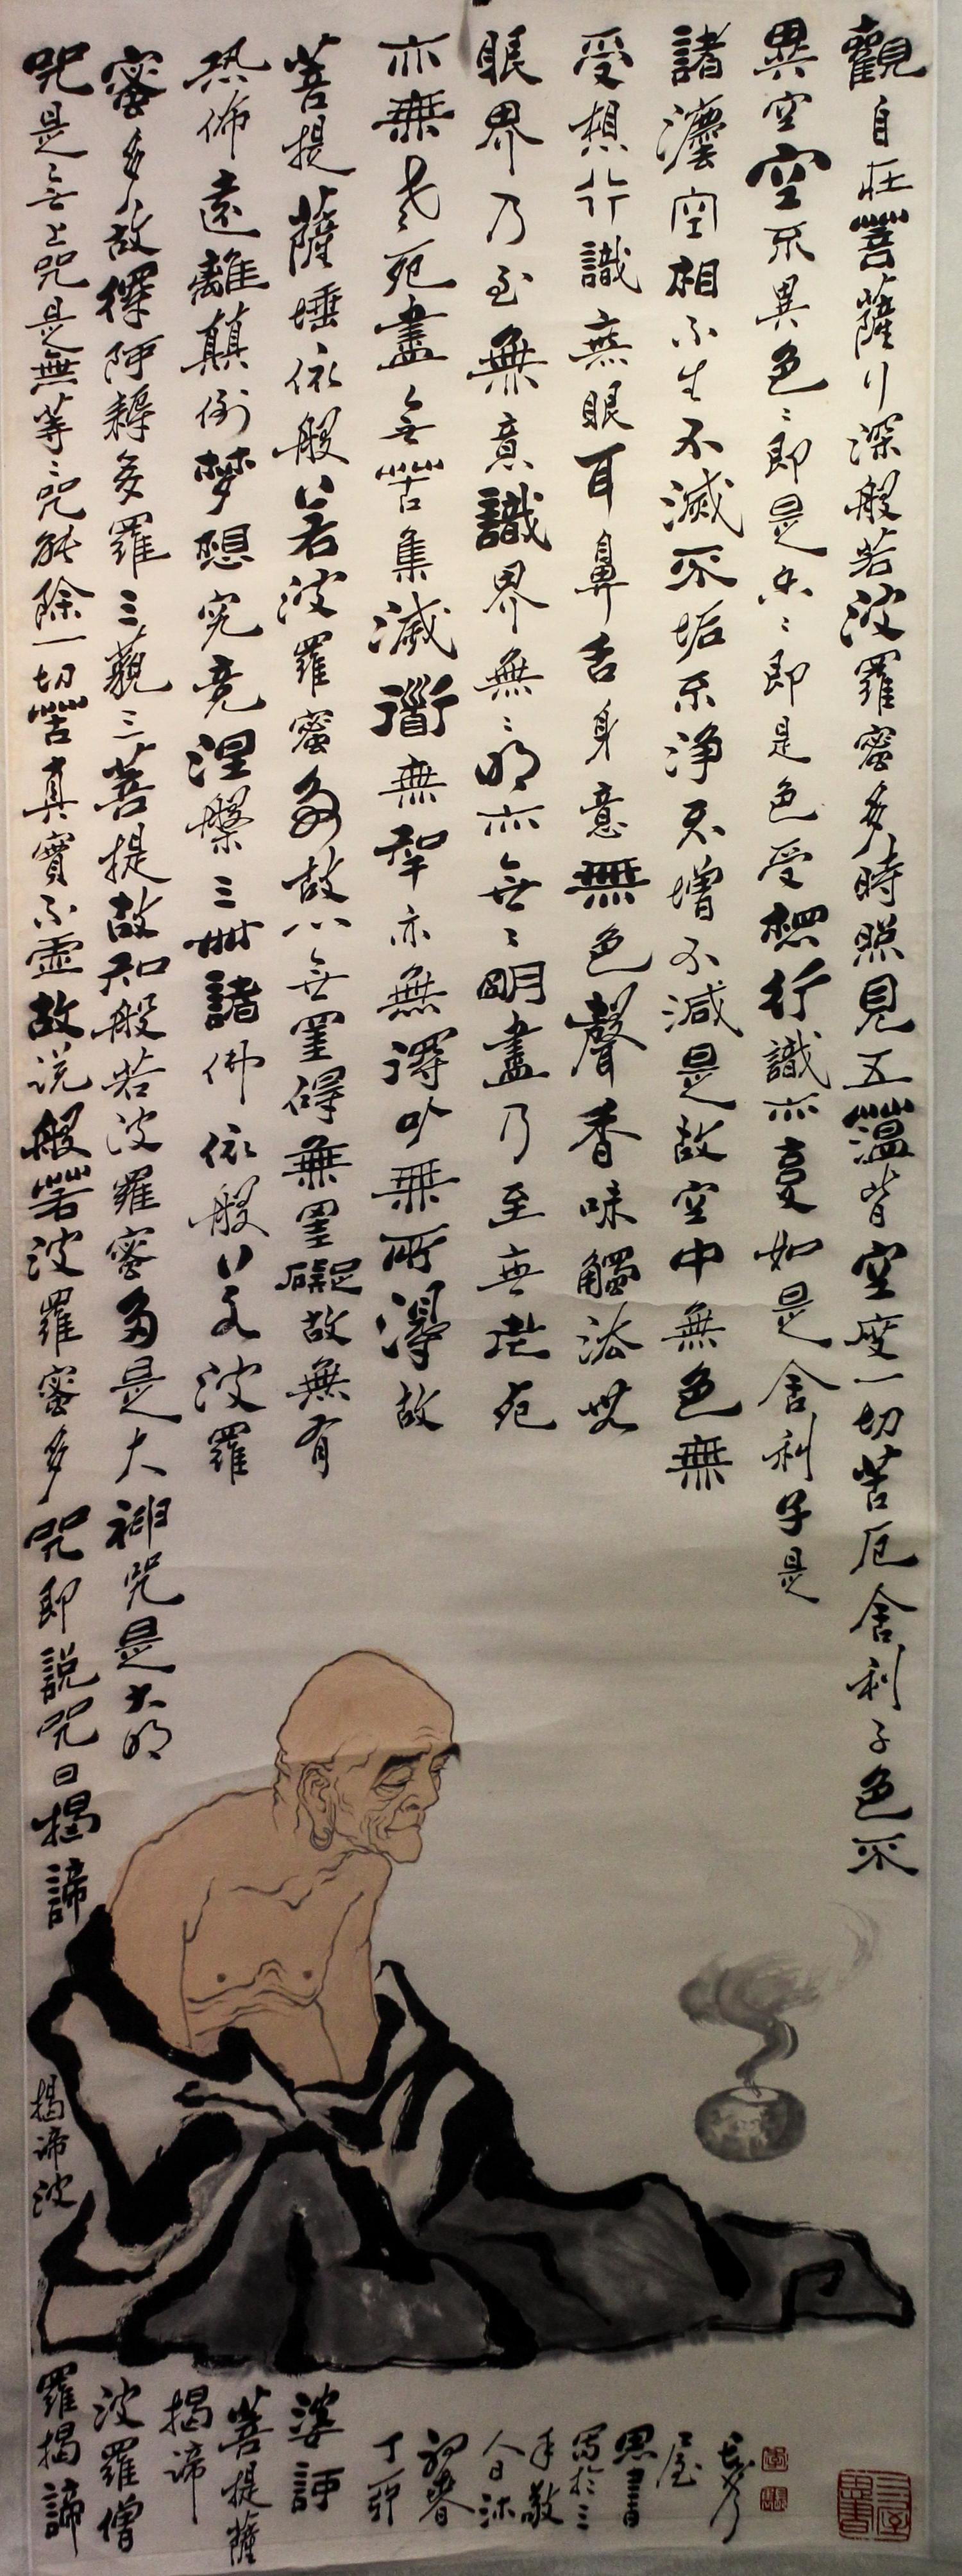 觀自在菩薩行深般若波羅蜜多時照見五蘊皆空度一切苦厄舍利子色不
異空空不異色〻即是空〻即是色受想行識亦復如是舍利子是
諸灋空相不生不滅不垢不淨不增不減是故空中無色無
受想行識無眼耳鼻舌身意無色聲香味觸法無
眼界乃至無意識界無〻明亦無〻明盡乃至無老死
亦無老死盡無苦集滅道無智亦無得以無所得故
菩提薩埵依般若波羅蜜多故心無罣碍無罣礙故無有
恐怖遠離顛倒夢想究竟涅槃三世諸佛依般若波羅
蜜多故得阿耨多羅三藐三菩提故知般若波羅蜜多是大神咒是大明
咒是無上咒是無等〻咒能除一切苦真實不虛故说般若波羅蜜多咒即說咒曰揭諦
揭谛波
羅揭諦
波羅僧
揭谛
菩提薩
婆訶
丁卯
初春
今日沐
手敬
寫於三
思書
屋